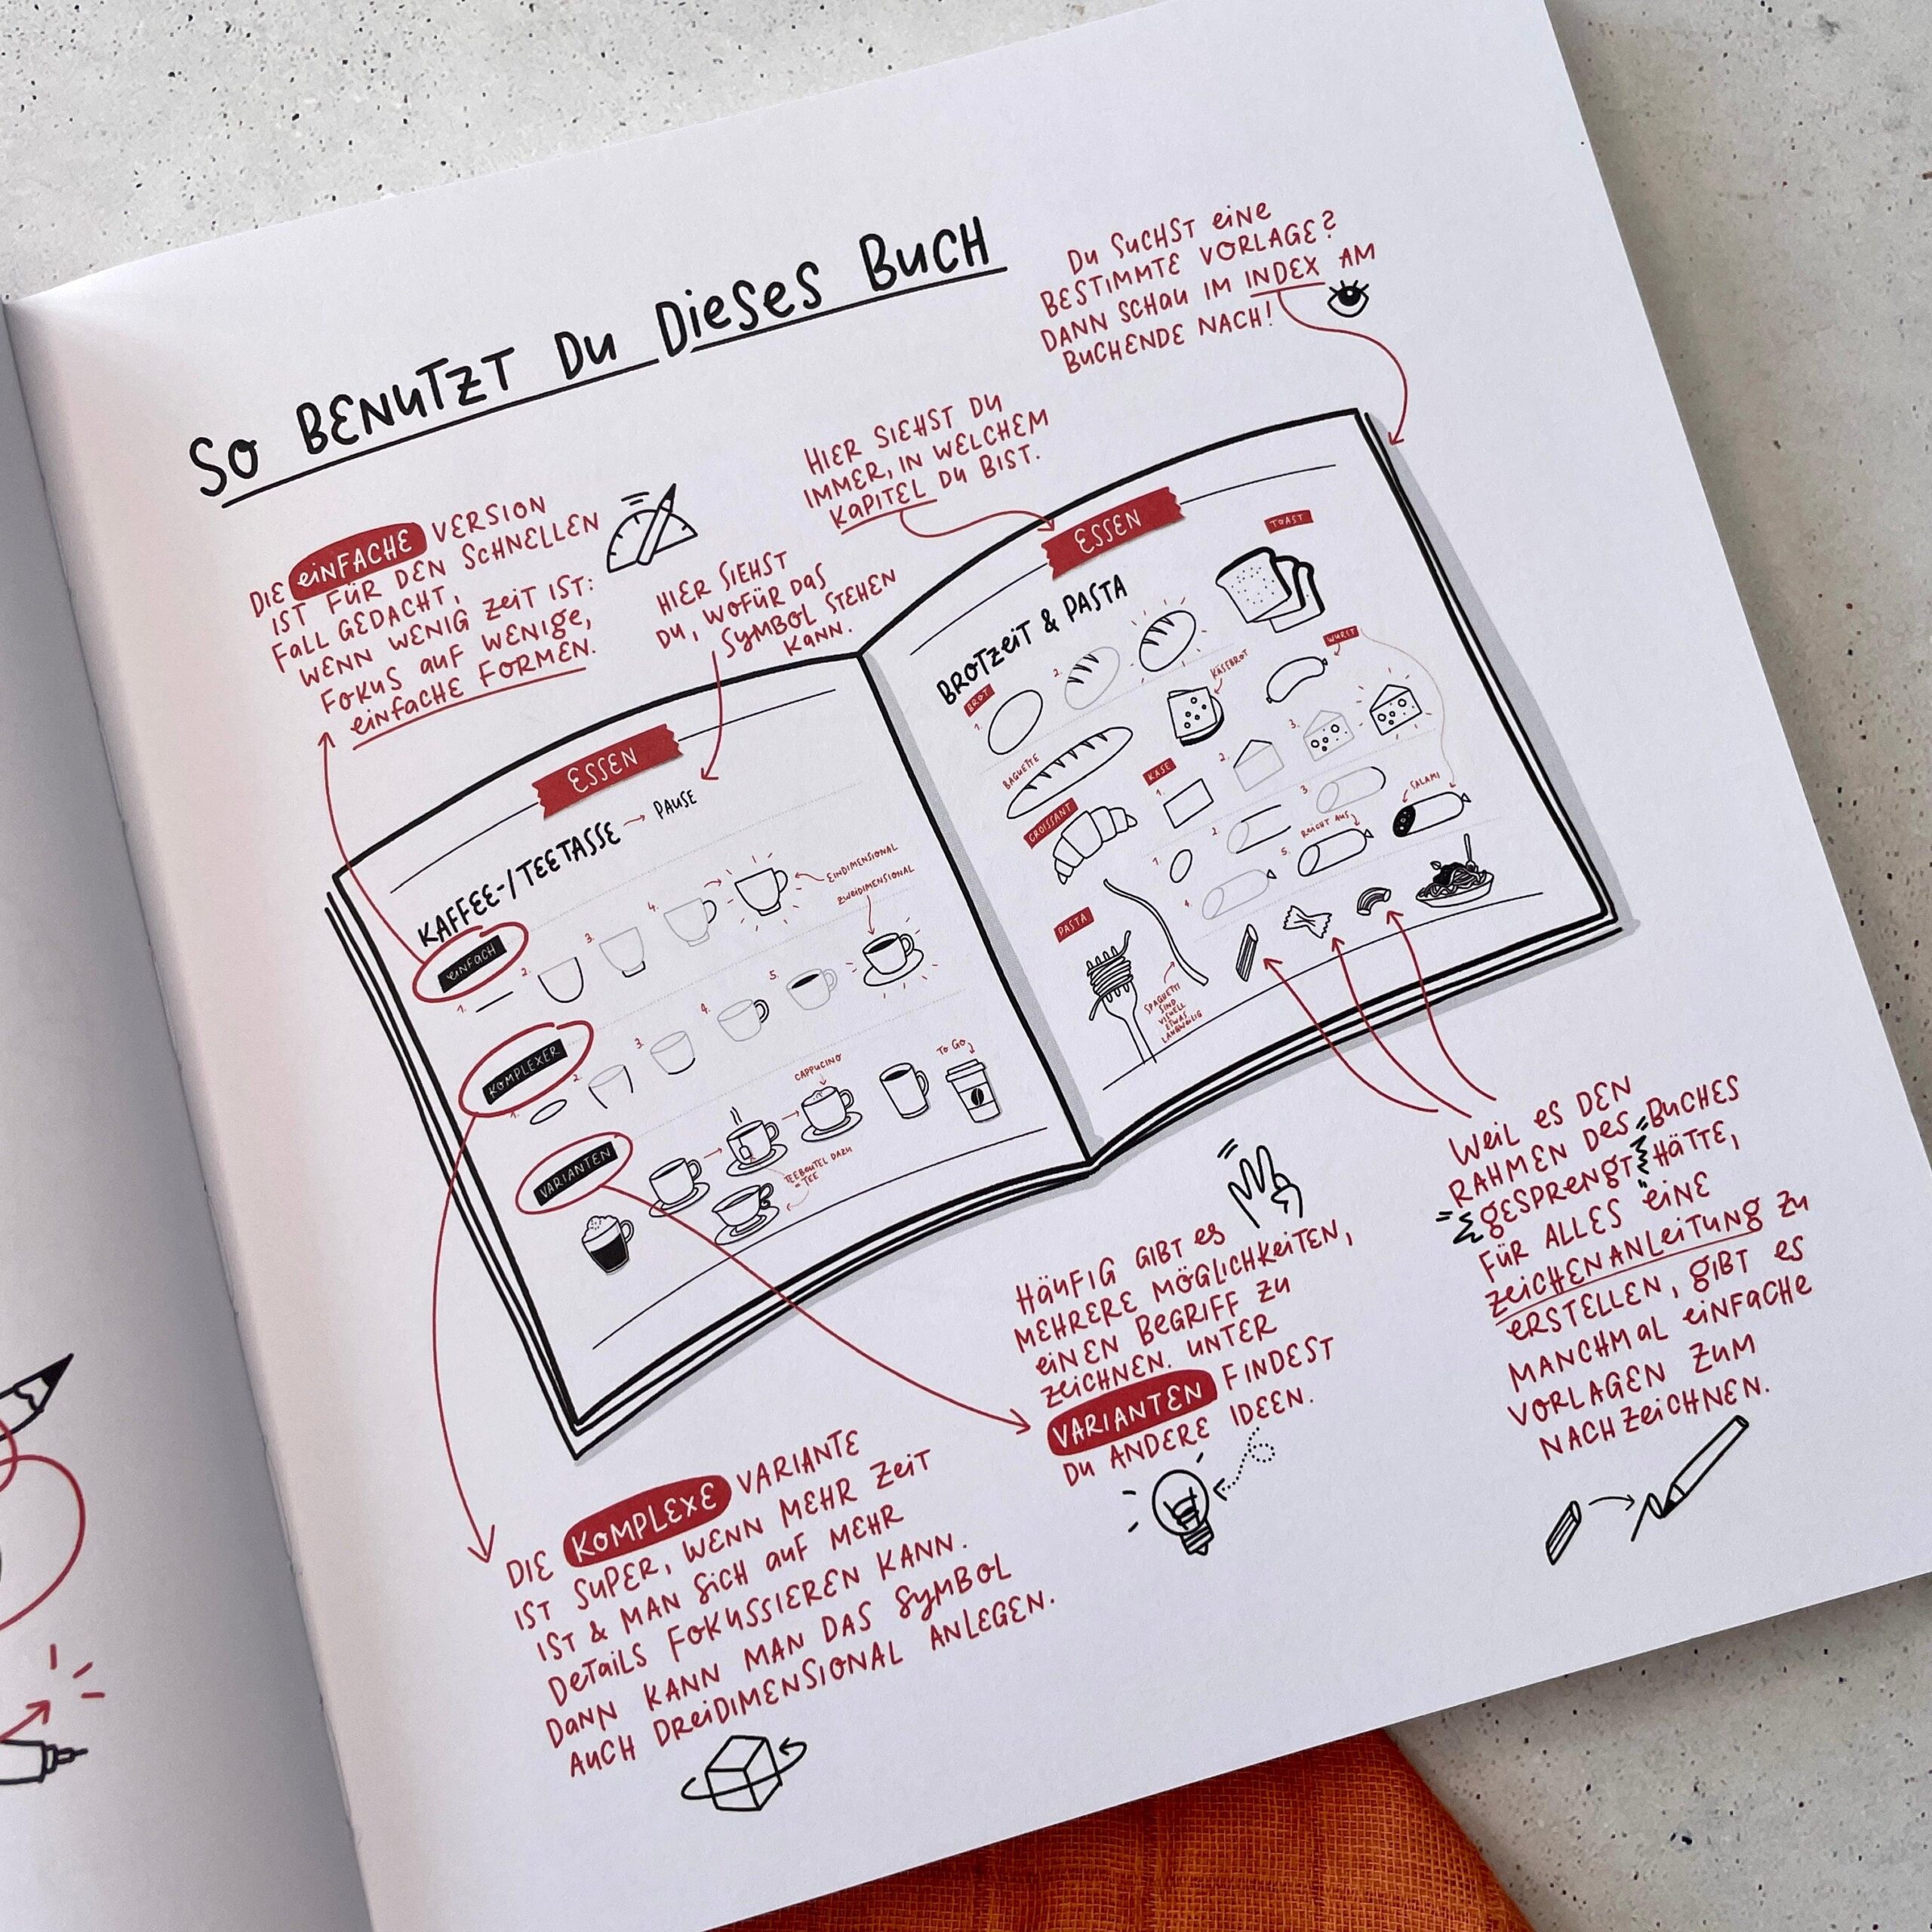 So BENUTZT DU DIESES BUCH
DU SUCHST EINE
BESTIMMTE VORLAGE?
DANN SCHAU IM INDEX AM
BUCHENDE NACH!
HIER SIEHST DU
IMMER, IN WELCHEM
KAPITEL DU BIST.
DIE EINFACHE VERSION
IST FÜR DEN SCHNELLEN
FALL GEDACHT,
WENN WENIG ZEIT IST:
FOKUS AUF WENIGE,
EINFACHE FORMEN.
HIER SIEHST
DU, WOFÜR DAS
SYMBOL STEHEN
KANN.
ESSEN
KAFFEE-/TEETASSE → PAUSE
EINFACH
1.
2.
3.
4.
EINDIMENSIONAL
ZWEIDIMENSIONAL
KOMPLEXER
1.
2.
3.
4.
5.
VARIANTEN
CAPPUCINO
TO GO
TEEBEUTEL DAZU
= TEE
ESSEN
BROTZEIT & PASTA
TOAST
BROT
1.
2.
KÄSEBROT
WURST
BAGUETTE
KÄSE
1.
2.
3.
CROISSANT
1.
2.
3.
4.
REICHT AUS
5.
SALAMI
PASTA
SPAGHETTI
SIND
VISUELL
ETWAS
LANGWEILIG
WEIL ES DEN
RAHMEN DES BUCHES
GESPRENGT HÄTTE,
FÜR ALLES EINE
ZEICHENANLEITUNG ZU
ERSTELLEN, GIBT ES
MANCHMAL EINFACHE
VORLAGEN ZUM
NACHZEICHNEN.
HÄUFIG GIBT ES
MEHRERE MÖGLICHKEITEN,
EINEN BEGRIFF ZU
ZEICHNEN. UNTER
VARIANTEN FINDEST
DU ANDERE IDEEN.
DIE KOMPLEXE VARIANTE
IST SUPER, WENN MEHR ZEIT
IST & MAN SICH AUF MEHR
DETAILS FOKUSSIEREN KANN.
DANN KANN MAN DAS SYMBOL
AUCH DREIDIMENSIONAL ANLEGEN.